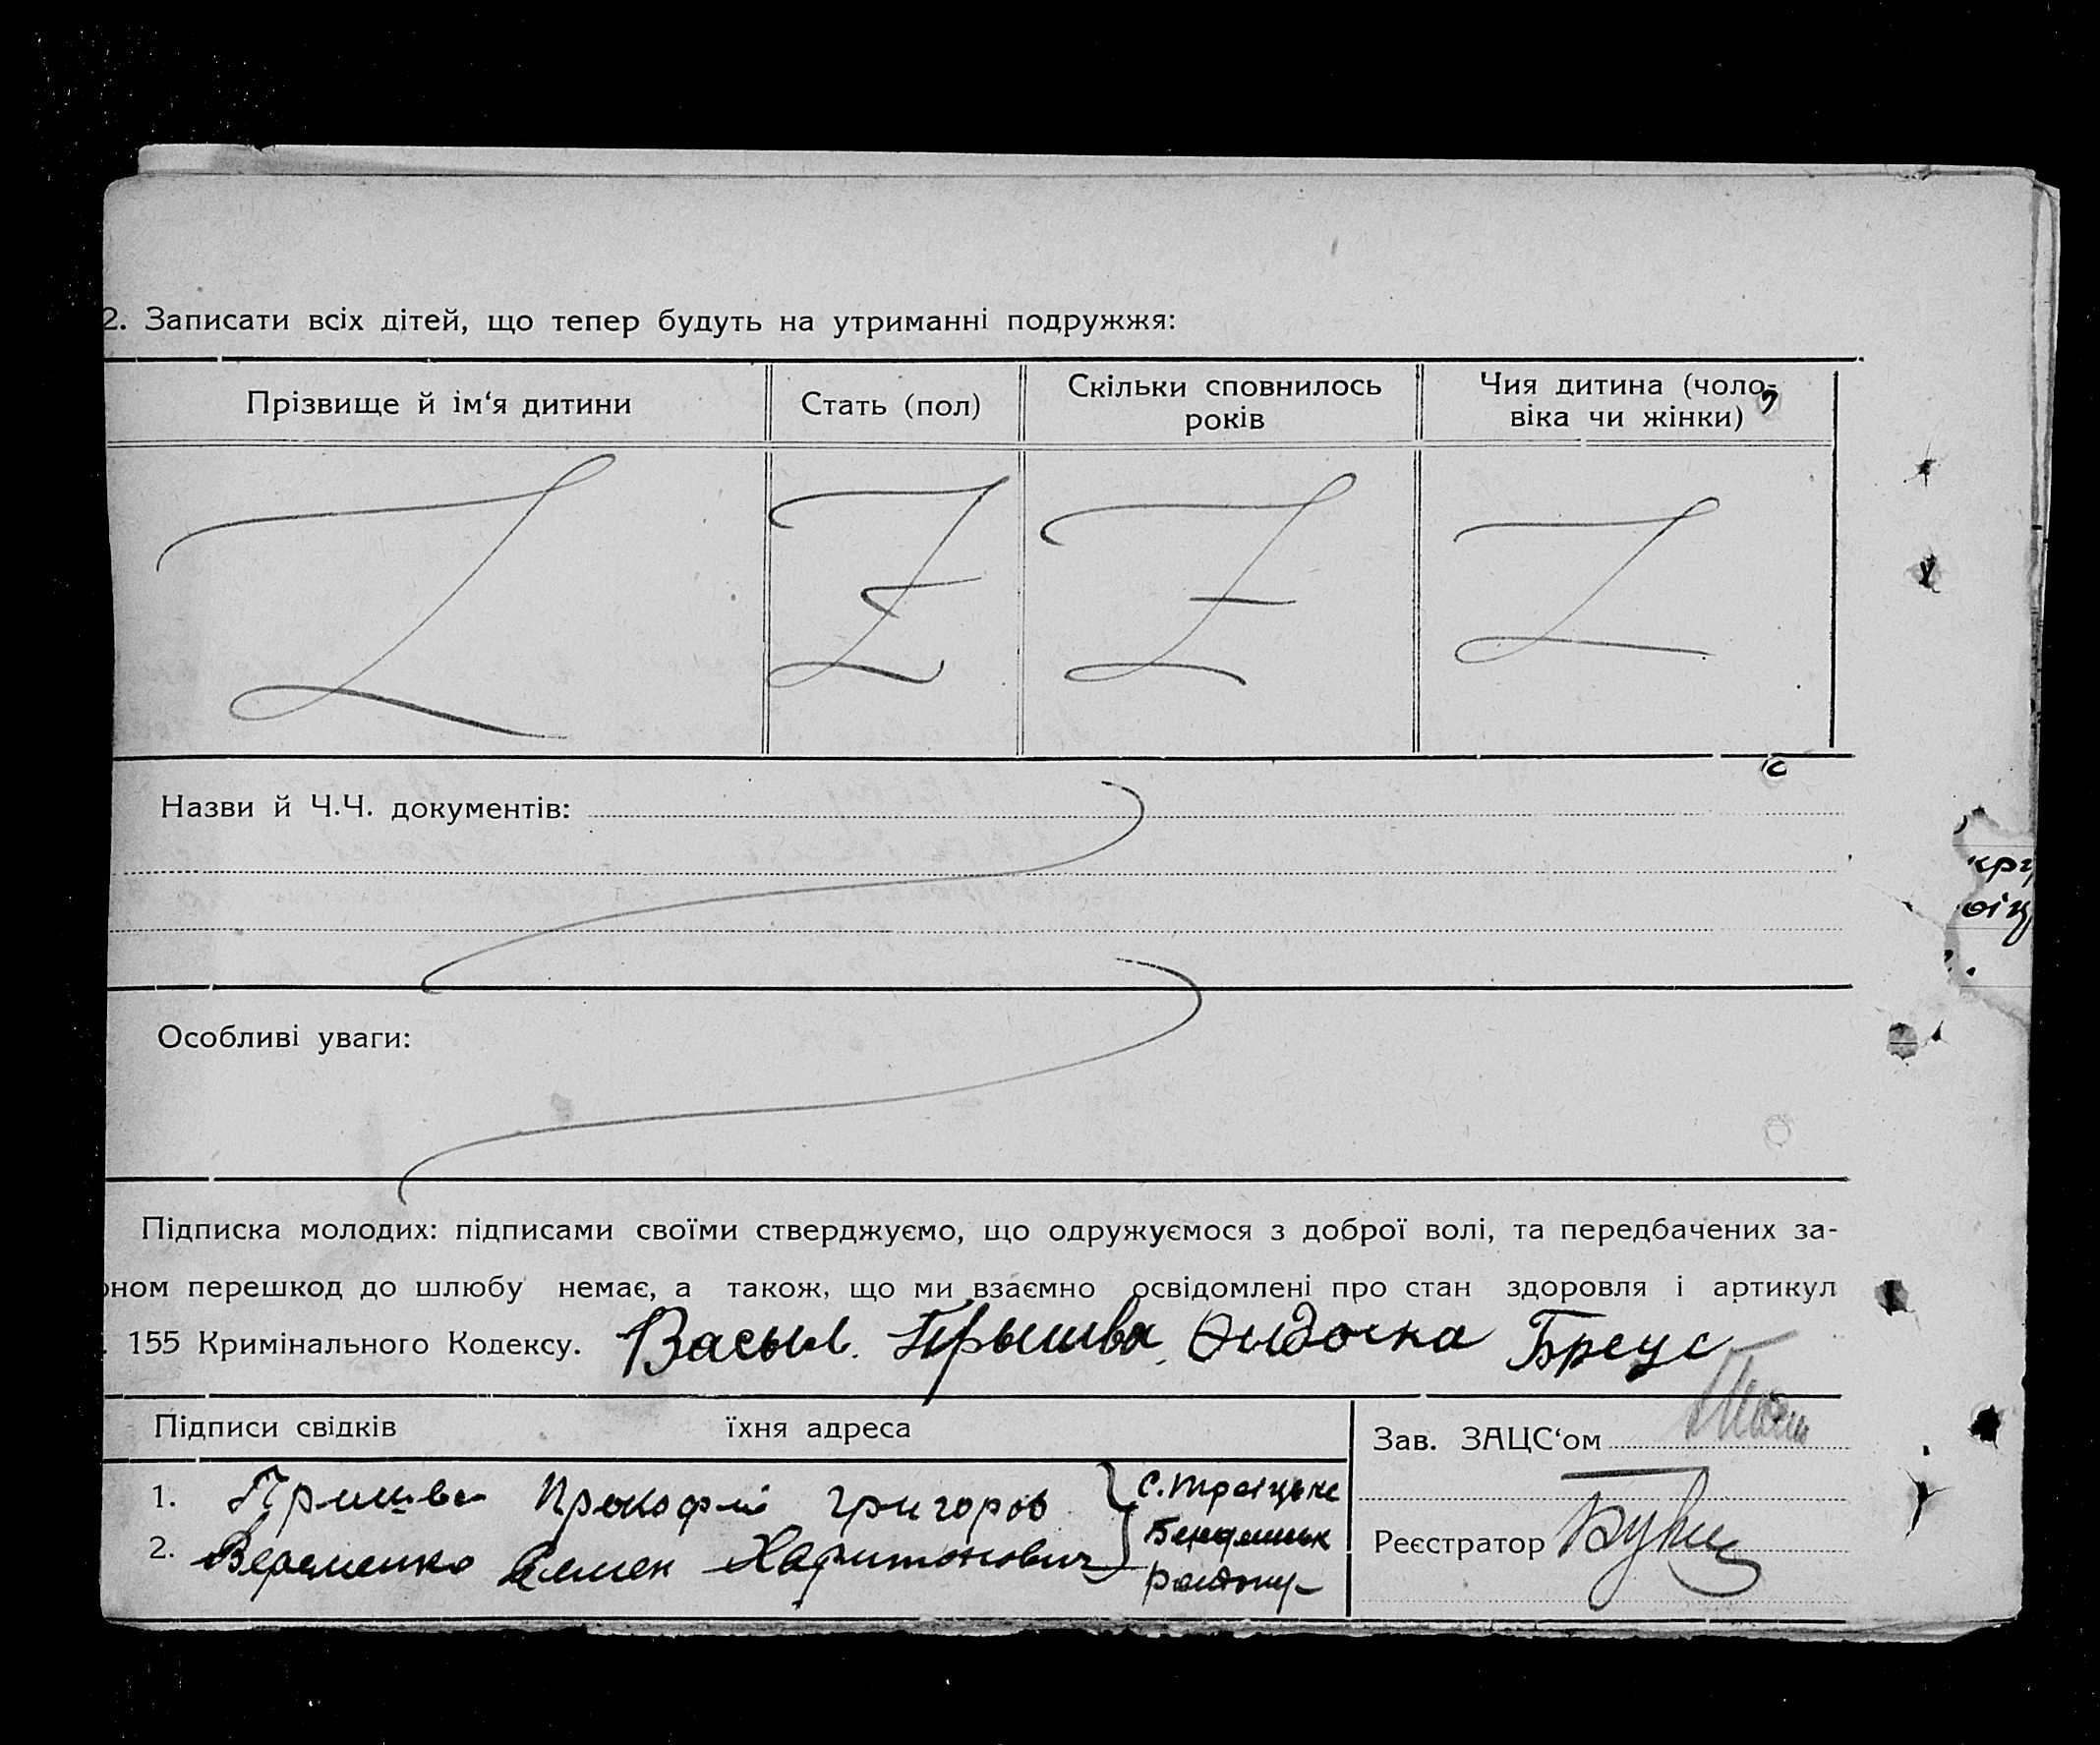 2. Записати всіх дітей, що тепер будуть на утриманні подружжя:
Прізвище й ім‘я дитини
Стать (пол)
Скільки сповнилось
років
Чия дитина (чоло-
віка чи жінки)
Назви й Ч.Ч. документів:
Особливі уваги:
Підписка молодих: підписами своїми стверджуємо, що одружуємося з доброї волі, та передбачених за-
оном перешкод до шлюбу немає, а також, що ми взаємно освідомлені про стан здоровля і артикул
. 155 Кримінального Кодексу. Васыл. Прышва Бреус
Підписи свідків їхня адреса
Зав. ЗАЦС‘ом
1. Пришва Прокофій Григоров с. Троіцьке
2. Веременко Семен Харитонович
району
Реєстратор